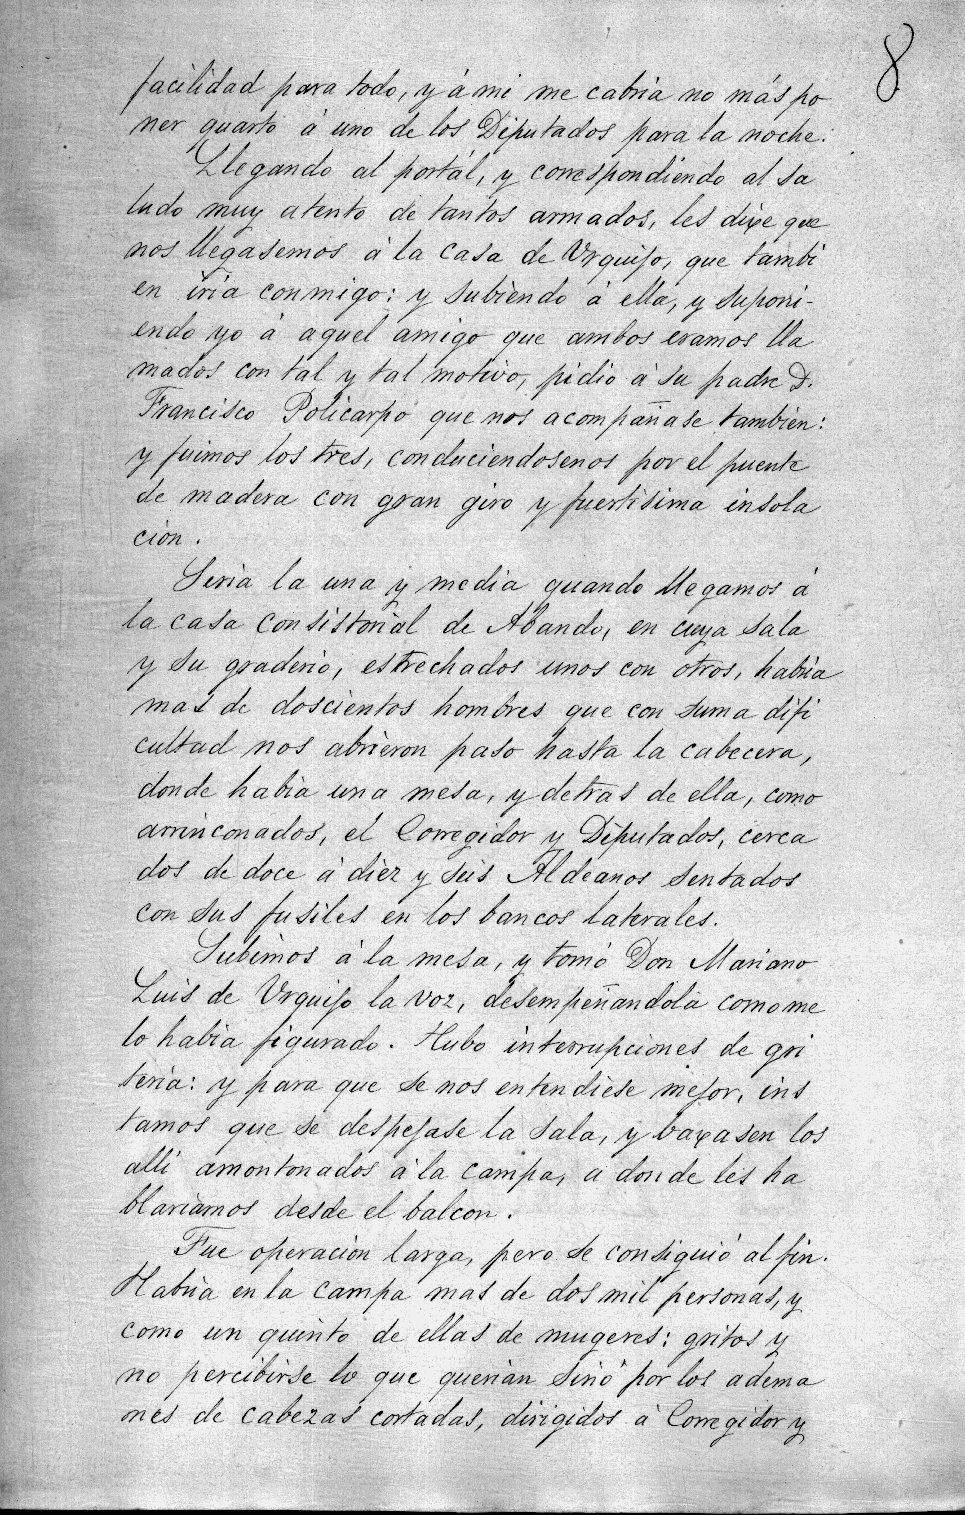 8
facilidad para todo, y á mi me cabria no más po
ner quarto á uno de los Diputados para la noche.
Llegando al portál, y correspondiendo al sa
ludo muy atento de tantos armados, les dixe que
nos llegasemos á la casa de Urquijo, que tambi
en iria conmigo: y subiendo á ella, y suponi-
endo yo á aquel amigo que ambos eramos lla
mados con tal y tal motivo, pidio á su padre D.
Francisco Policarpo que nos acompañase tambien:
y fuimos los tres, conduciendosenos por el puente
de madera con gran giro y fuertisima insola
cion.
Seria la una y media quando llegamos á
la casa consistorial de Abando, en cuya sala
y su graderio, estrechados unos con otros, habria
mas de doscientos hombres que con suma difi
cultad nos abrieron paso hasta la cabecera,
donde habia una mesa, y detras de ella, como
arrinconados, el Corregidor y Diputados, cerca
dos de doce á diez y seis Aldeanos sentados
con sus fusiles en los bancos laterales.
Subimos á la mesa, y tomó Don Mariano
Luis de Urquijo la voz, desempeñandola como me
lo habia figurado. Hubo interrupciones de gri
teria: y para que se nos entendiese mejor, ins
tamos que se despejase la sala, y baxasen los
alli amontonados á la campa, a donde les ha
blariamos desde el balcon.
Fue operacion larga, pero se consiguió al fin.
Habria en la campa mas de dos mil personas, y
como un quinto de ellas de mugeres: gritos y
no percibirse lo que querian sinó por los adema
nes de cabezas cortadas, dirigidos á Corregidor y